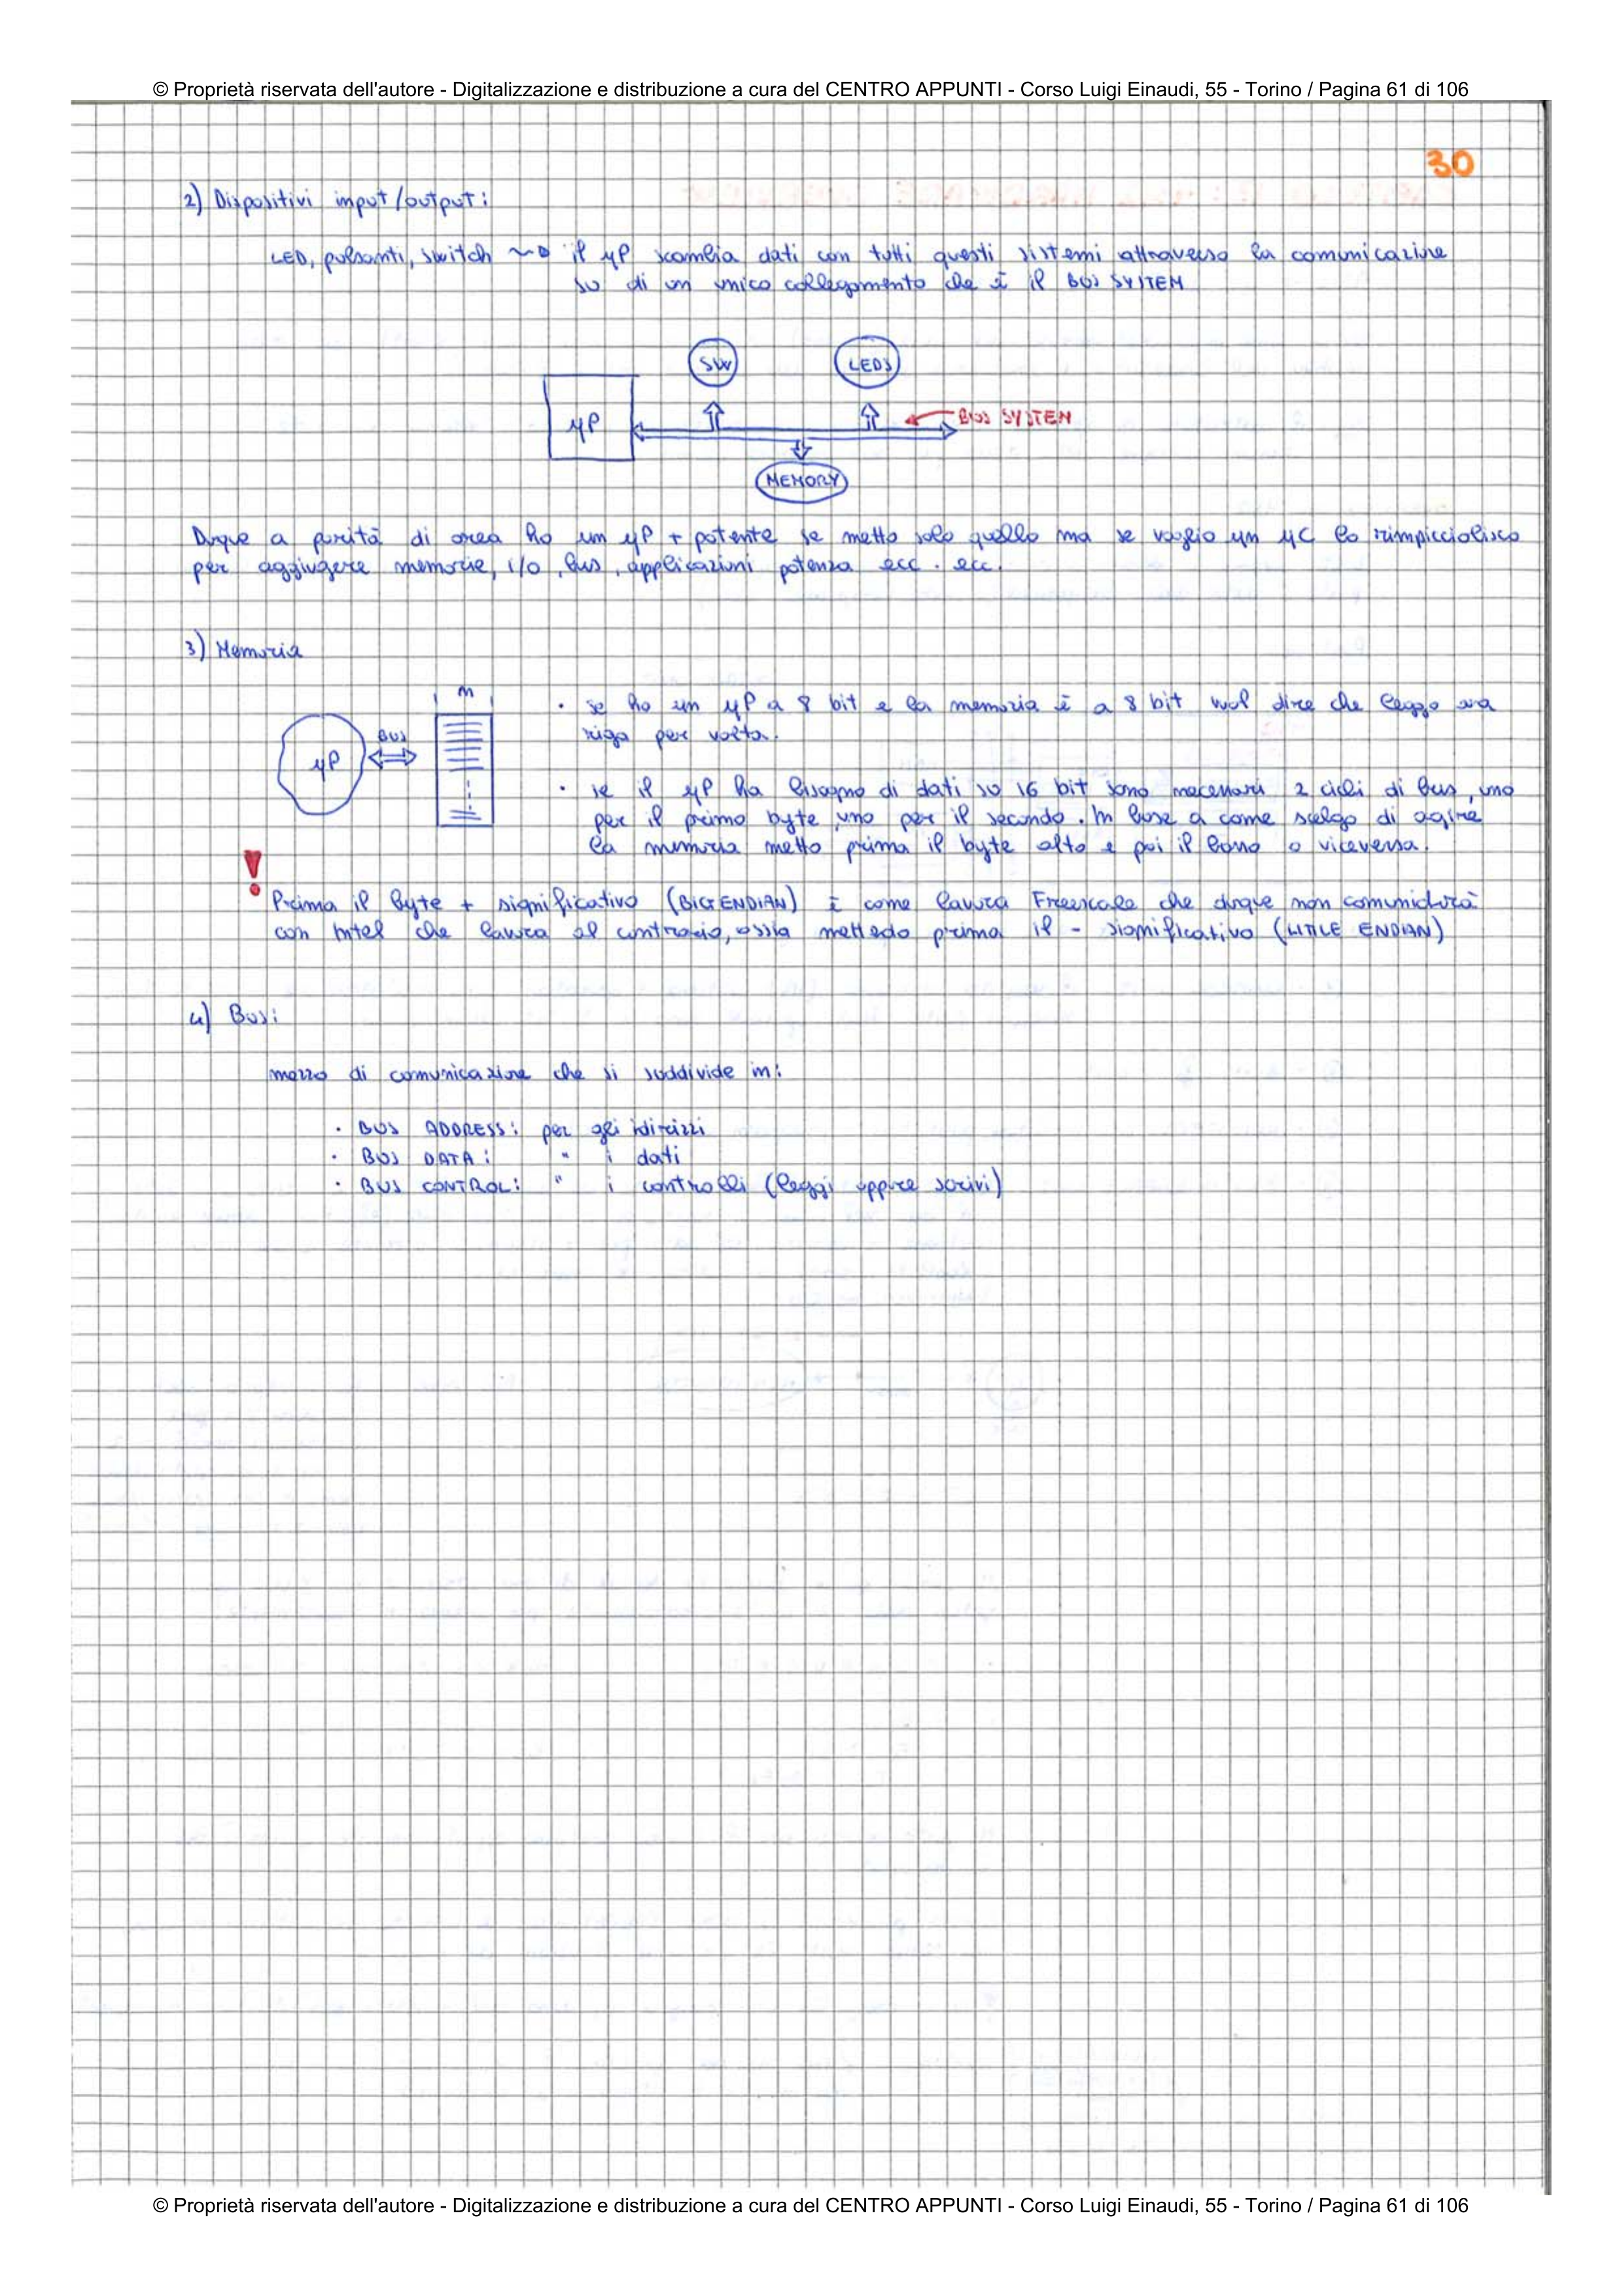 © Proprietà riservata dell'autore - Digitalizzazione e distribuzione a cura del CENTRO APPUNTI - Corso Luigi Einaudi, 55 - Torino / Pagina 61 di 106
30
2) Dispositivi input/output:
LED, pulsanti, switch ~> il μP scambia dati con tutti questi sistemi attraverso la comunicazione
su di un unico collegamento che è il BUS SYSTEM
SW
LEDS
μP
BUS SYSTEM
MEMORY
Duque a parità di area ho un μP + potente se metto solo quello ma se voglio un μC lo rimpicciolisco
per aggiugere memorie, i/o, bus, applicazioni potenza ecc. ecc.
3) Memoria
m
BUS
μP
• se ho un μP a 8 bit e la memoria è a 8 bit vuol dire che leggo una
riga per volta.
• se il μP ha bisogno di dati su 16 bit sono necessari 2 cicli di bus, uno
per il primo byte, uno per il secondo. In base a come scelgo di agire
la memoria metto prima il byte alto e poi il basso o viceversa.
!
Prima il byte + significativo (BIG ENDIAN) è come lavora Freescale che duque non comunicherà
con Intel che lavora al contrario, ossia mettedo prima il - significativo (LITTLE ENDIAN)
4) Bus:
mezzo di comunicazione che si suddivide in:
• BUS ADDRESS: per gli idirizzi
• BUS DATA: " i dati
• BUS CONTROL: " i controlli (leggi oppure scrivi)
© Proprietà riservata dell'autore - Digitalizzazione e distribuzione a cura del CENTRO APPUNTI - Corso Luigi Einaudi, 55 - Torino / Pagina 61 di 106